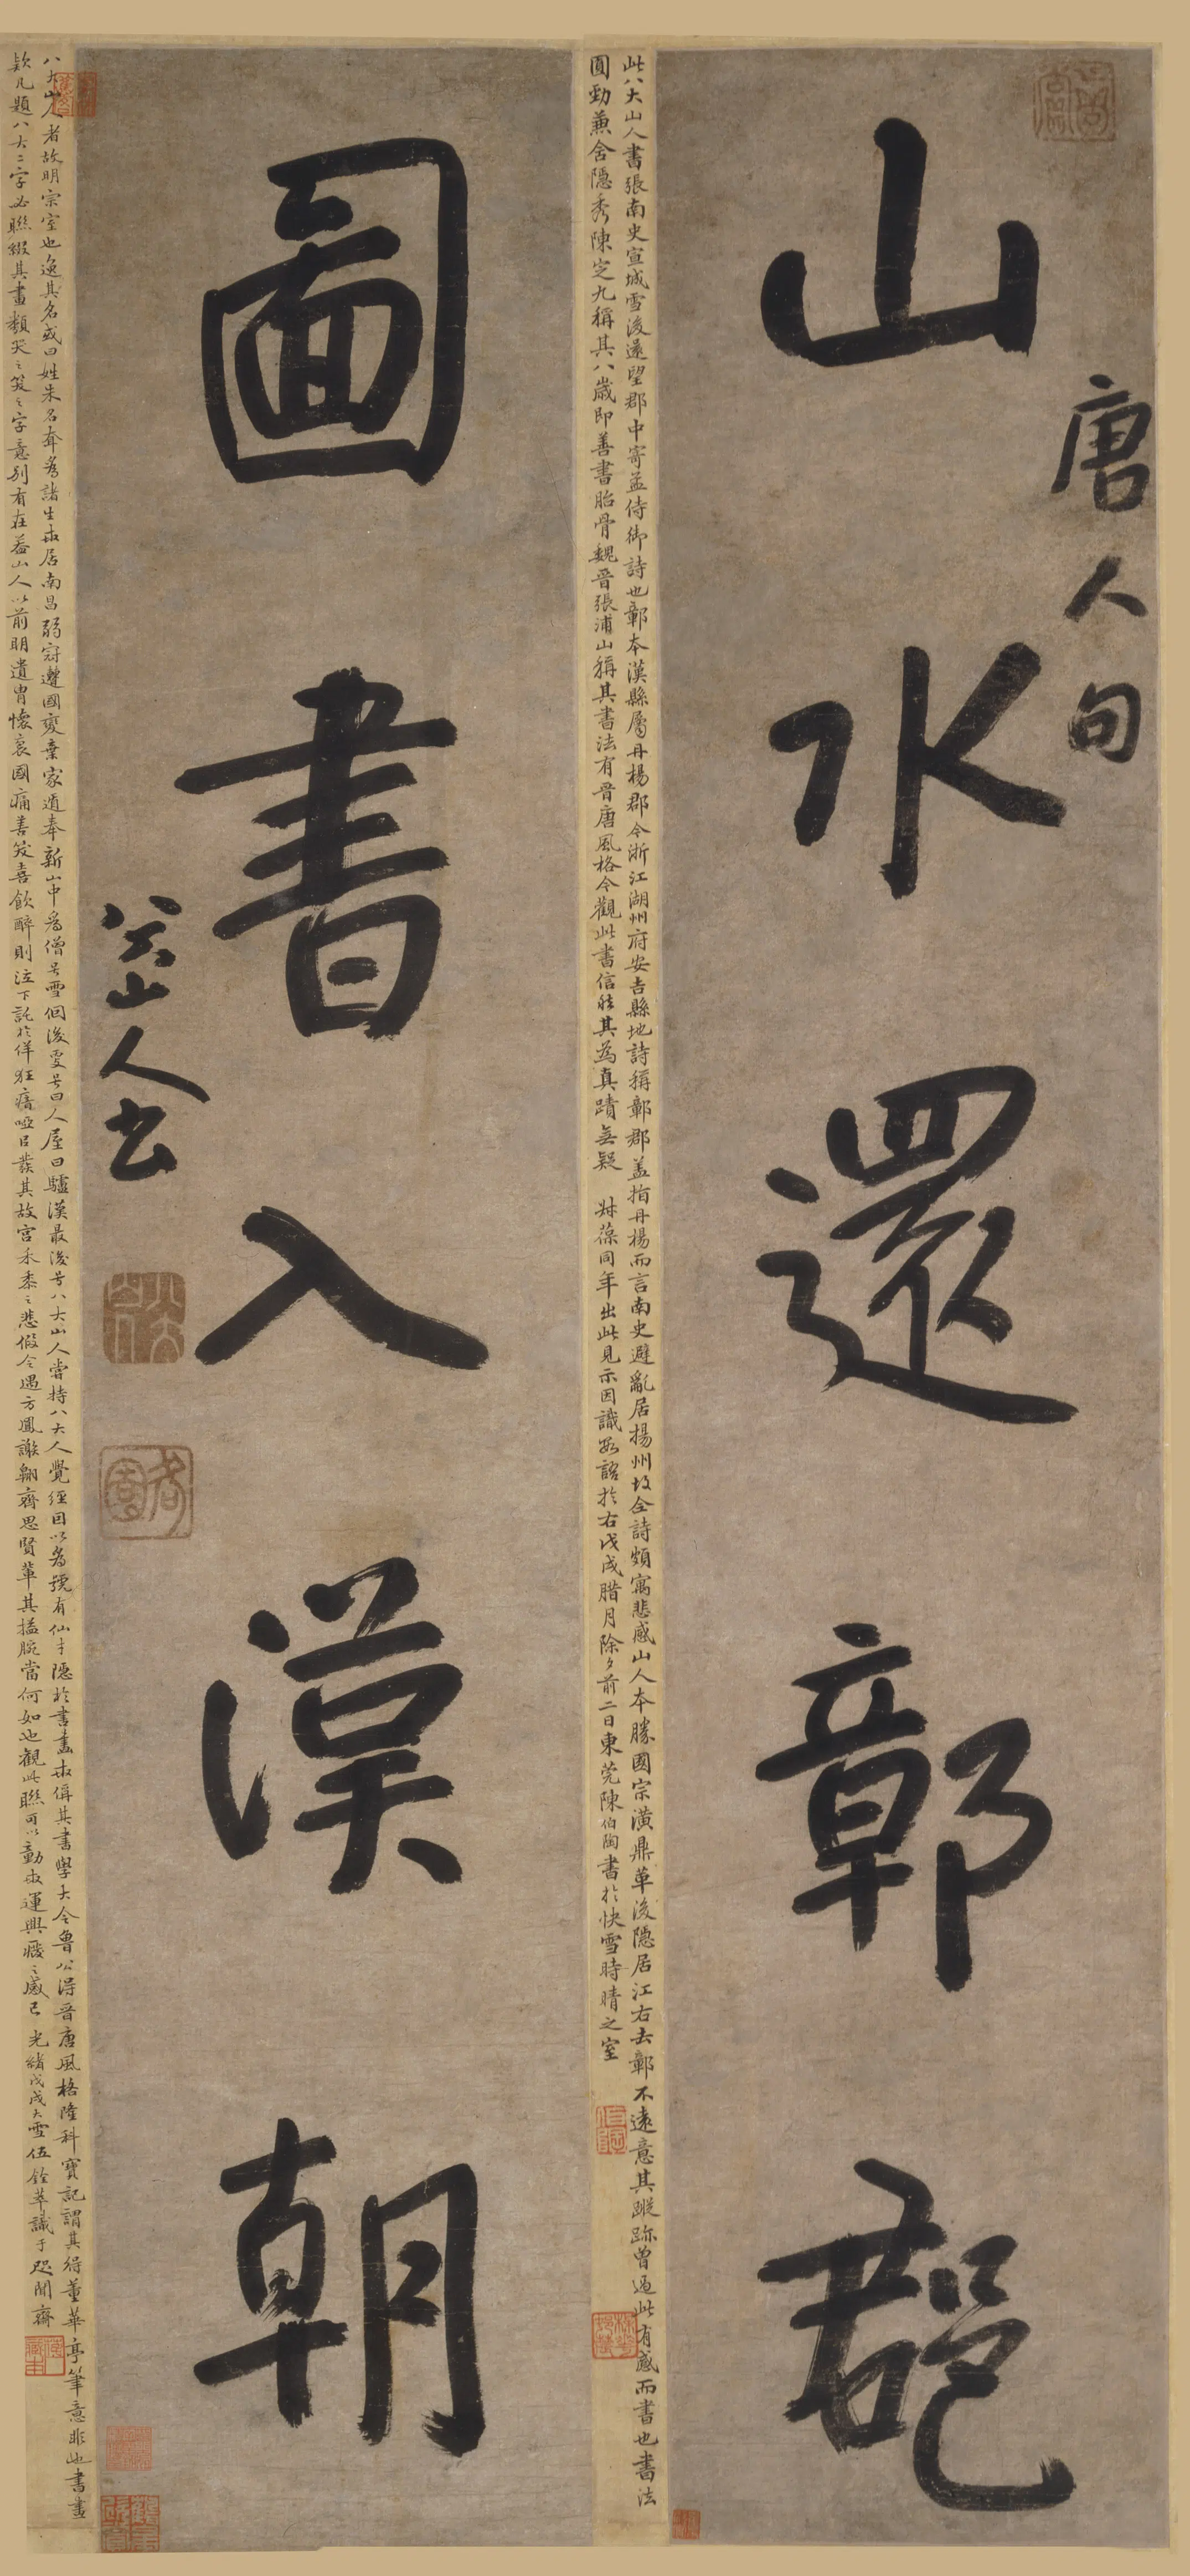 唐人句
山水還鄣郡
此八大山人書張南史宣城雪後還望郡中寄孟侍御詩也鄣本漢縣屬丹楊郡今浙江湖州府安吉縣地詩稱鄣郡蓋指丹楊而言南史避亂居揚州故全詩頗寓悲感山人本勝國宗潢鼎革後隱居江右去鄣不遠意其蹤跡曾過此有感而書也書法
圓勁兼含隱秀陳定九稱其八歲即善書胎骨魏晉張浦山稱其書法有晉唐風格今觀此書信然其為真蹟無疑 葆同年出此見示因識數語於右戊戌腊月除夕前二日東莞陳伯陶書於快雪時晴之室
圖書入漢朝
八大山人書
八大山人者故明宗室也逸其名或曰姓朱名耷為諸生世居南昌弱冠遭國變棄家遁奉新山中為僧号雪個後更号曰人屋曰驢漢最後号八大山人嘗持八大人覺經因以為號有仙才隱於書畫世偁其書學大令魯公得晉唐風格隆科寶記謂其得董華亭筆意非也書畫
欵凡題八大二字必聯綴其畫類哭之笑之字意別有在蓋山人以前明遺胄懷哀國痛善笑喜飲醉則泣下託於佯狂瘖啞以發其故宮禾黍之悲假令遇方鳳謝翱齊思賢輩其搤腕當何如也觀此聯可以動世運興廢之感已 光緒戊戌大雪伍銓萃識于聞齋